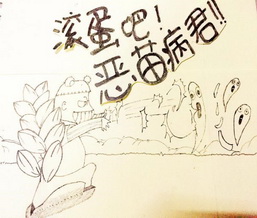 滚蛋吧！
恶苗病君!!